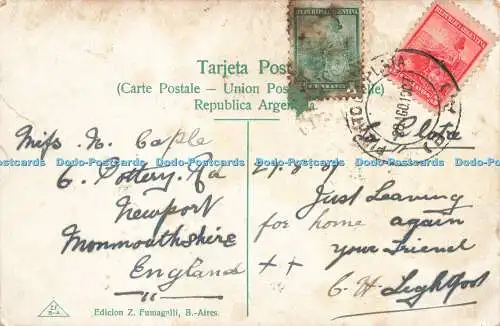 Tarjeta Pos
(Carte Postale — Union Pos
Republica Argen
REPUBLICA ARGENTINA
REPUBLICA ARGENTINA
CENTAVO
28 AGO 1907
La Plata
Miss N. Caple
6. Pottery. Rd
Newport
Monmouthshire
England
27.8.07
Just Leaving
for home again
your Friend
C H Lightfoot
Dodo-Postcards Dodo-Postcards Dodo-Postcards Dodo-Postcards Dodo-Postcards Dodo-Postcards
Edicion Z. Fumagalli, B.-Aires.